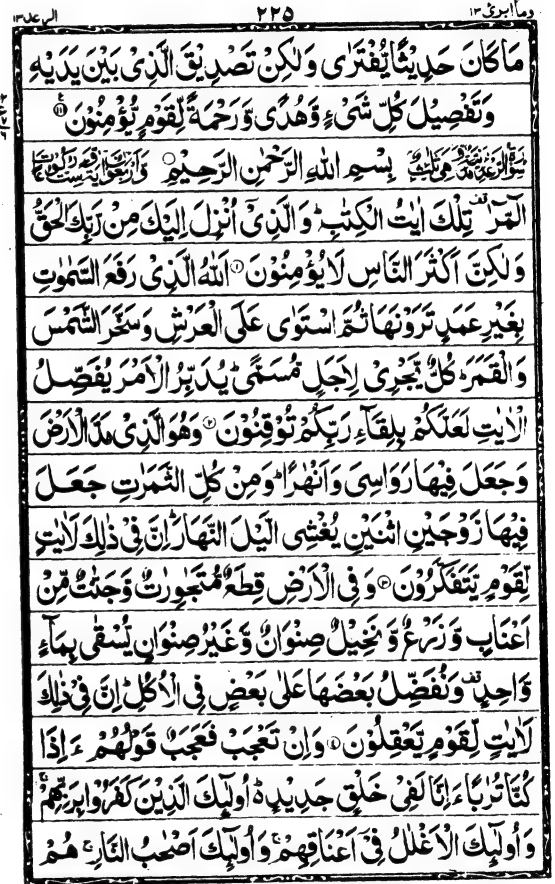 وما ابرئ ١٣ ٢٢٥ الرعد ١٣
مَا كَانَ حَدِيْثًا يُّفْتَرٰى وَلٰكِنْ تَصْدِيْقَ الَّذِىْ بَيْنَ يَدَيْهِ
وَتَفْصِيْلَ كُلِّ شَىْءٍ وَّهُدًى وَّرَحْمَةً لِّقَوْمٍ يُّؤْمِنُوْنَ ۝١١١
بِسْمِ اللهِ الرَّحْمٰنِ الرَّحِيْمِ ۝
الٓمّٓرٰ ۫ تِلْكَ اٰيٰتُ الْكِتٰبِ ؕ وَالَّذِىْۤ اُنْزِلَ اِلَيْكَ مِنْ رَّبِّكَ الْحَقُّ
وَلٰكِنَّ اَكْثَرَ النَّاسِ لَا يُؤْمِنُوْنَ ۝١ اَللهُ الَّذِىْ رَفَعَ السَّمٰوٰتِ
بِغَيْرِ عَمَدٍ تَرَوْنَهَا ثُمَّ اسْتَوٰى عَلَى الْعَرْشِ وَسَخَّرَ الشَّمْسَ
وَالْقَمَرَ ؕ كُلٌّ يَّجْرِىْ لِاَجَلٍ مُّسَمًّى ؕ يُدَبِّرُ الْاَمْرَ يُفَصِّلُ
الْاٰيٰتِ لَعَلَّكُمْ بِلِقَآءِ رَبِّكُمْ تُوْقِنُوْنَ ۝٢ وَهُوَ الَّذِىْ مَدَّ الْاَرْضَ
وَجَعَلَ فِيْهَا رَوَاسِىَ وَاَنْهٰرًا ؕ وَمِنْ كُلِّ الثَّمَرٰتِ جَعَلَ
فِيْهَا زَوْجَيْنِ اثْنَيْنِ يُغْشِى الَّيْلَ النَّهَارَ ؕ اِنَّ فِىْ ذٰلِكَ لَاٰيٰتٍ
لِّقَوْمٍ يَّتَفَكَّرُوْنَ ۝٣ وَفِى الْاَرْضِ قِطَعٌ مُّتَجٰوِرٰتٌ وَّجَنّٰتٌ مِّنْ
اَعْنَابٍ وَّزَرْعٌ وَّنَخِيْلٌ صِنْوَانٌ وَّغَيْرُ صِنْوَانٍ يُّسْقٰى بِمَآءٍ
وَّاحِدٍ ۫ وَنُفَضِّلُ بَعْضَهَا عَلٰى بَعْضٍ فِى الْاُكُلِ ؕ اِنَّ فِىْ ذٰلِكَ
لَاٰيٰتٍ لِّقَوْمٍ يَّعْقِلُوْنَ ۝٤ وَاِنْ تَعْجَبْ فَعَجَبٌ قَوْلُهُمْ ءَاِذَا
كُنَّا تُرٰبًا ءَاِنَّا لَفِىْ خَلْقٍ جَدِيْدٍ ؕ اُولٰٓئِكَ الَّذِيْنَ كَفَرُوْا بِرَبِّهِمْ ۚ
وَاُولٰٓئِكَ الْاَغْلٰلُ فِىْۤ اَعْنَاقِهِمْ ۚ وَاُولٰٓئِكَ اَصْحٰبُ النَّارِ ۚ هُمْ